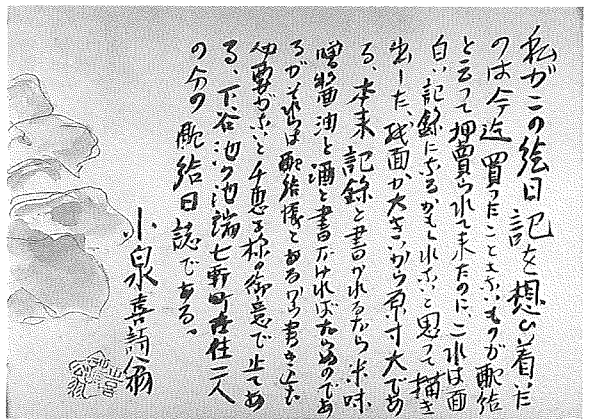 私がこの絵日記を想ひ着いた
のは今迄買ったこともないものが配給
と云って押賣られて来たのに、これは面
白い記録になるかもしれないと思って描き
出した、紙面が大きいから原寸大であ
る、本来記録と書かれるなら米味
噌醤油と酒と書かなければならぬのであ
るがそれらは配給帳とあるから書き込む
必要がないと千恵子様の御意で止てあ
る、下谷池ノ池端七軒町在住二人
の分の配給日誌である。
小泉喜詩翁